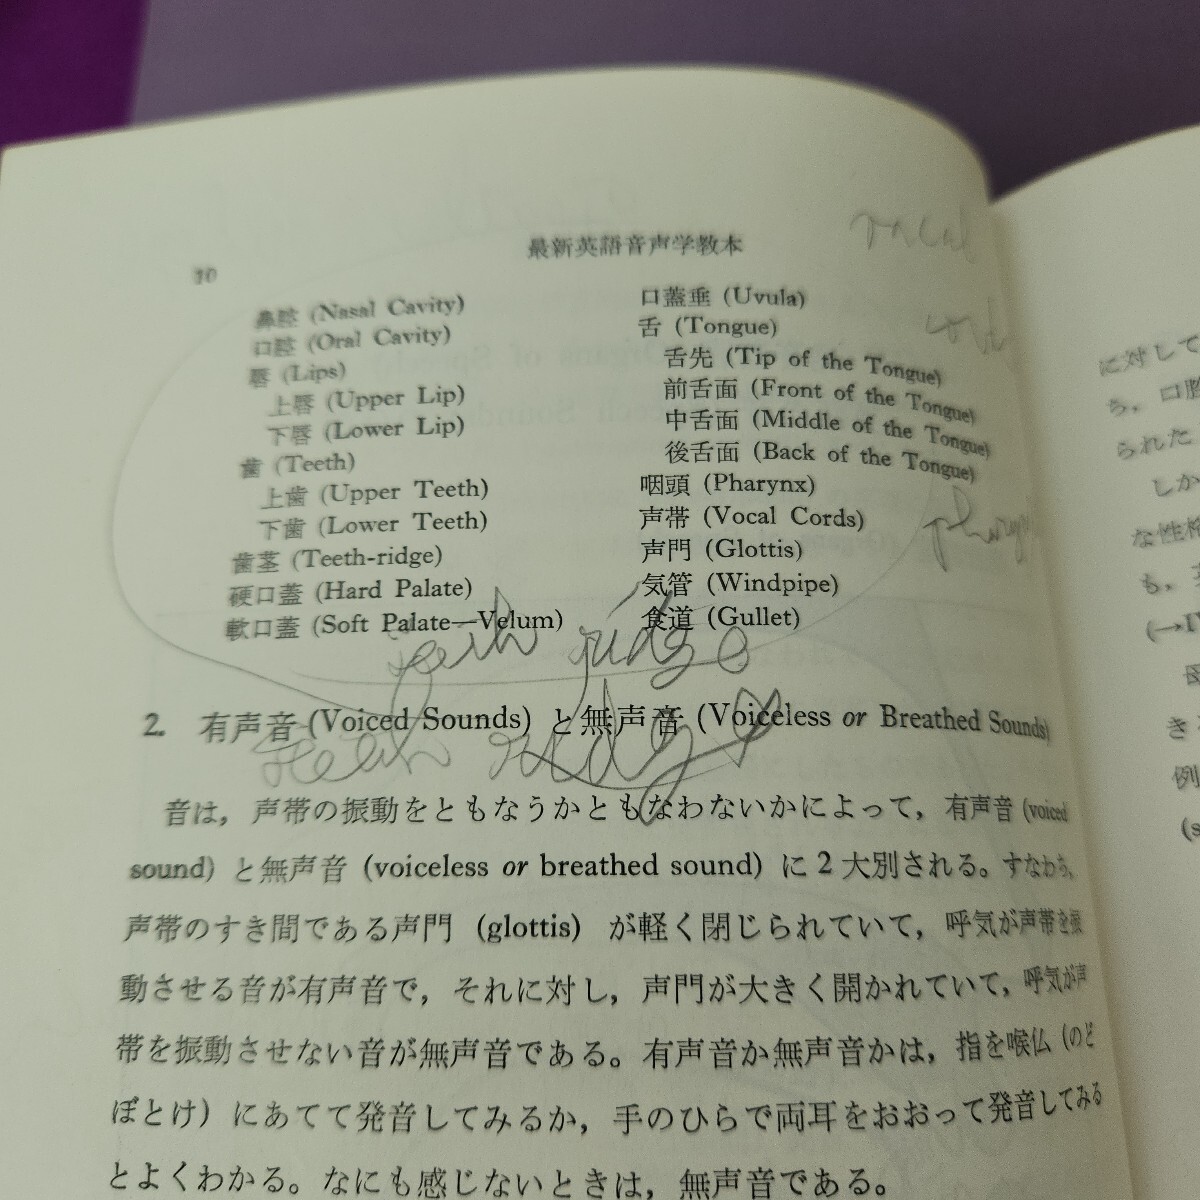 10
最新英語音声学教本
鼻腔 (Nasal Cavity)
口腔 (Oral Cavity)
唇 (Lips)
上唇 (Upper Lip)
下唇 (Lower Lip)
歯 (Teeth)
上歯 (Upper Teeth)
下歯 (Lower Teeth)
歯茎 (Teeth-ridge)
硬口蓋 (Hard Palate)
軟口蓋 (Soft Palate—Velum)
口蓋垂 (Uvula)
舌 (Tongue)
舌先 (Tip of the Tongue)
前舌面 (Front of the Tongue)
中舌面 (Middle of the Tongue)
後舌面 (Back of the Tongue)
咽頭 (Pharynx)
声帯 (Vocal Cords)
声門 (Glottis)
気管 (Windpipe)
食道 (Gullet)
vocal
teeth ridge
teeth ridge
2. 有声音 (Voiced Sounds) と無声音 (Voiceless or Breathed Sounds)
音は，声帯の振動をともなうかともなわないかによって，有声音 (voiced
sound) と無声音 (voiceless or breathed sound) に2大別される。すなわち，
声帯のすき間である声門 (glottis) が軽く閉じられていて，呼気が声帯を振
動させる音が有声音で，それに対し，声門が大きく開かれていて，呼気が声
帯を振動させない音が無声音である。有声音か無声音かは，指を喉仏（のど
ぼとけ）にあてて発音してみるか，手のひらで両耳をおおって発音してみる
とよくわかる。なにも感じないときは，無声音である。
に対して
ち，口腔
られた
しか
な性格
も，
(→I
き
例
(s